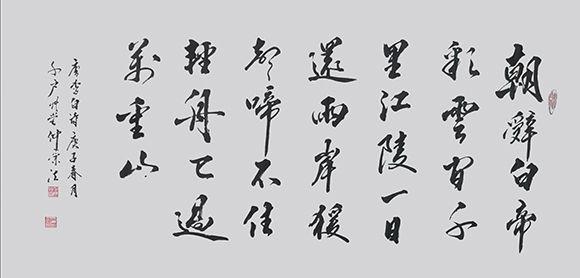 朝辭白帝
彩雲間千
里江陵一日
還兩岸猿
聲啼不住
輕舟已過
萬重山
唐李白詩庚子春月